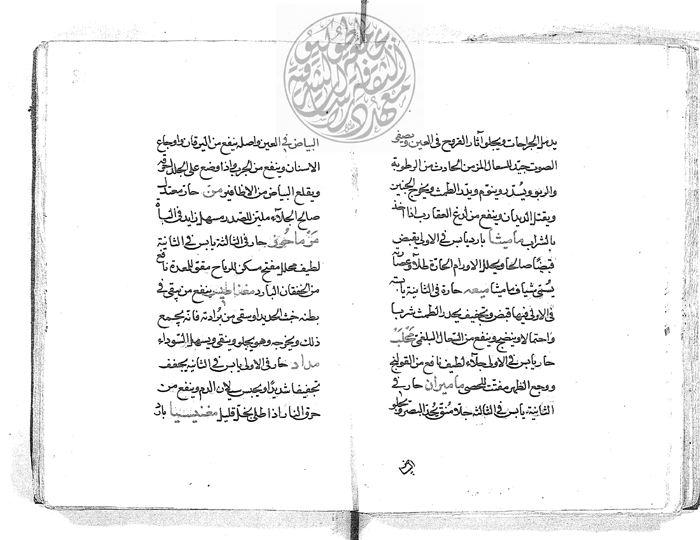 يدمل الجراحات ويجلو آثار القروح في العين ويصفى
الصوت جيد للسعال المزمن الحادث من الرطوبة
والربو ويسدر وينوم ويدر الطمث ويخرج الجنين
ويقتل الديدان وينفع من لدغ العقارب اذا اخذ
بالشراب ماميثا بارد يابس في الاولى يقبض
قبضا صالحا ويحلل الاورام الحارة طلاء وعصارته
يسمى شياف ماميثا ميعه حارة في الثانية يابسة
في الاولى فيها قبض وتجفيف يدر الطمث شربا
واحتمالا وينضج وينفع من السعال البلغمي محلب
حار يابس في الاولى جلاء لطيف نافع من القولنج
ووجع الظهر مفتت للحصى ماميران حار في
الثانية يابس في الثالثة جلا منق يحد البصر ويجلو
البياض
البياض في العين واصله ينفع من اليرقان واوجاع
الاسنان وينفع من الجرب واذا وضع على الجلد قرحه
ويقلع البياض من الاظافير من حار معتدل
صالح الجلاء ملين للصدر مسهل زايد في الباه
مرماحوز حار في الثالثة يابس في الثانية
لطيف محلل مفتح مسكن للرياح مقو للمعدة نافع
من الخفقان البارد مغناطيس ينفع من بقي في
بطنه خبث الحديد او سقي من برادته فانه يجمع
ذلك ويخرجه وهو يجلو وينقي ويسهل السوداء
مداد حار في الاولى يابس في الثانية يجفف
تجفيفا شديدا ويحبس سيلان الدم وينفع من
حرق النار اذا طلي بخل قليل مغنيسيا بارد